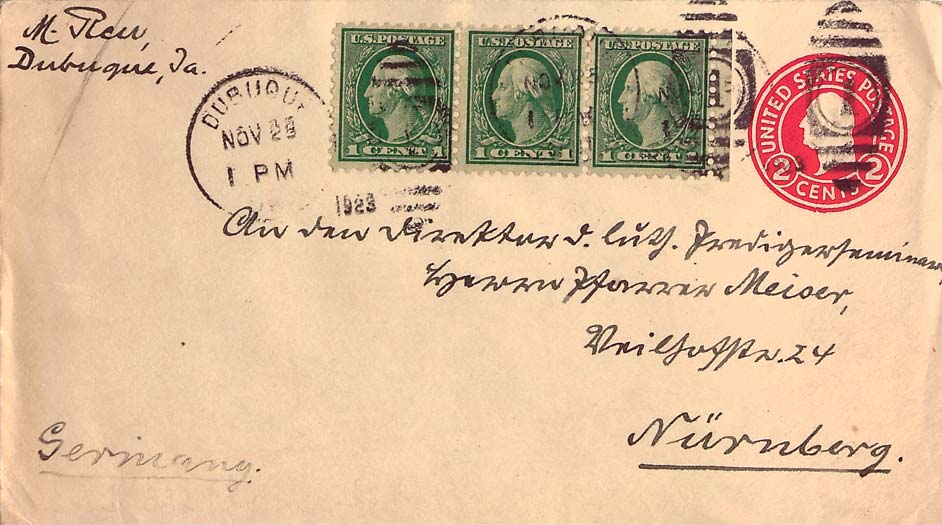 M. Reu,
Dubuque, Ia.
DUBUQU
NOV 23
1 PM
1923
U.S. POSTAGE
1 CENT 1
U.S. POSTAGE
1 CENT 1
U.S. POSTAGE
1 CENT 1
UNITED STATES POSTAGE
2 CENTS 2
An den Direktor d. luth. Predigerseminars,
Herrn Pfarrer Meiser,
Veilhofstr. 24
Nürnberg.
Germany.